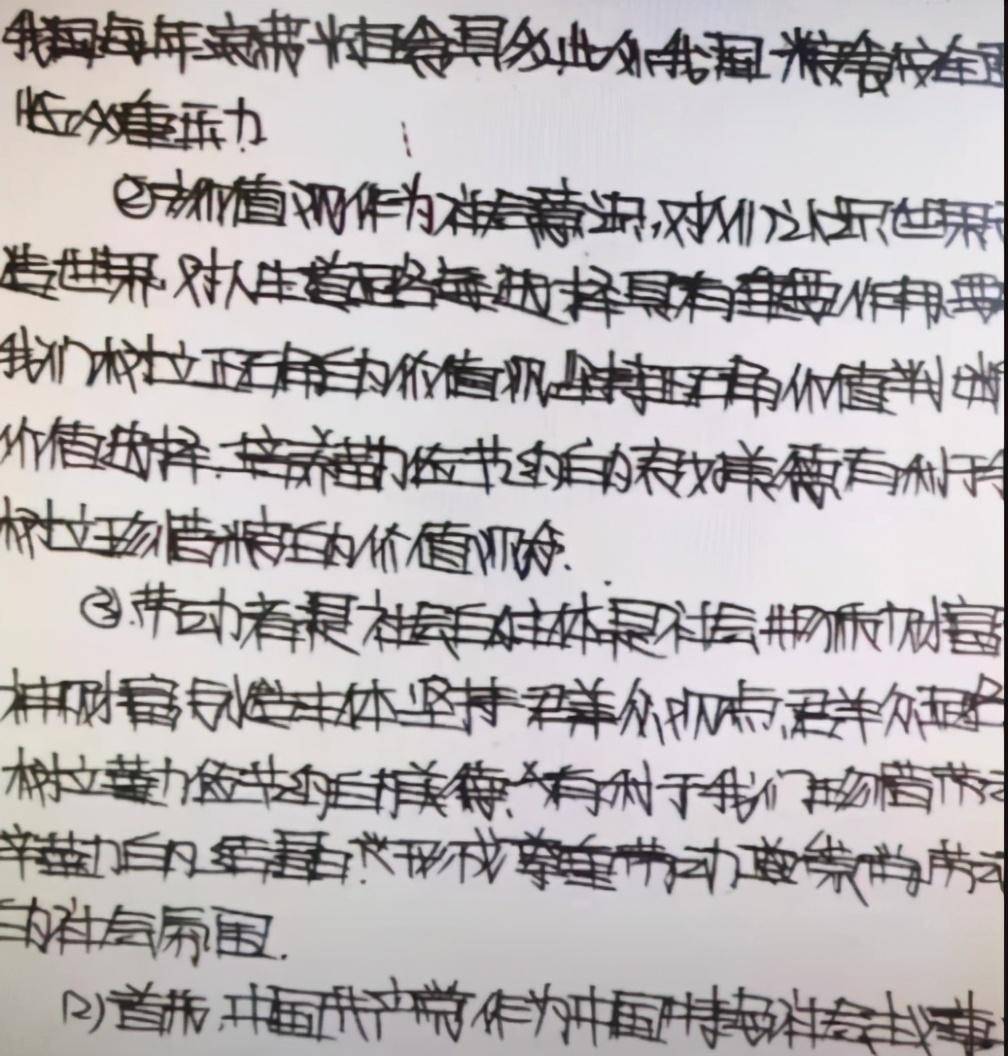 我国每年浪费粮食具多,此外我国粮食安全面
临双重压力.
②价值观作为社会意识,对人们认识世界
造世界,对人生道路每选择具有重要作用.要
我们树立正确的价值观,坚持正确价值判断
价值选择.培养勤俭节约的传统美德有利于
树立珍惜粮食的价值观念.
③.劳动者是社会的主体是社会物质财富
神财富创造主体.坚持群众观点,群众
树立勤俭节约的美德.有利于我们珍惜劳动
辛勤的结晶.形成尊重劳动崇尚劳动
的社会氛围.
(2)首先,中国共产党作为中国特色社会主义事